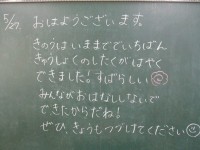 5/27. おはようございます
きのうはいままででいちばん
きゅうしょくのしたくがはやく
できました。すばらしい
みんながおはなししないで
できたからだね!
ぜひ、きょうもつづけてください